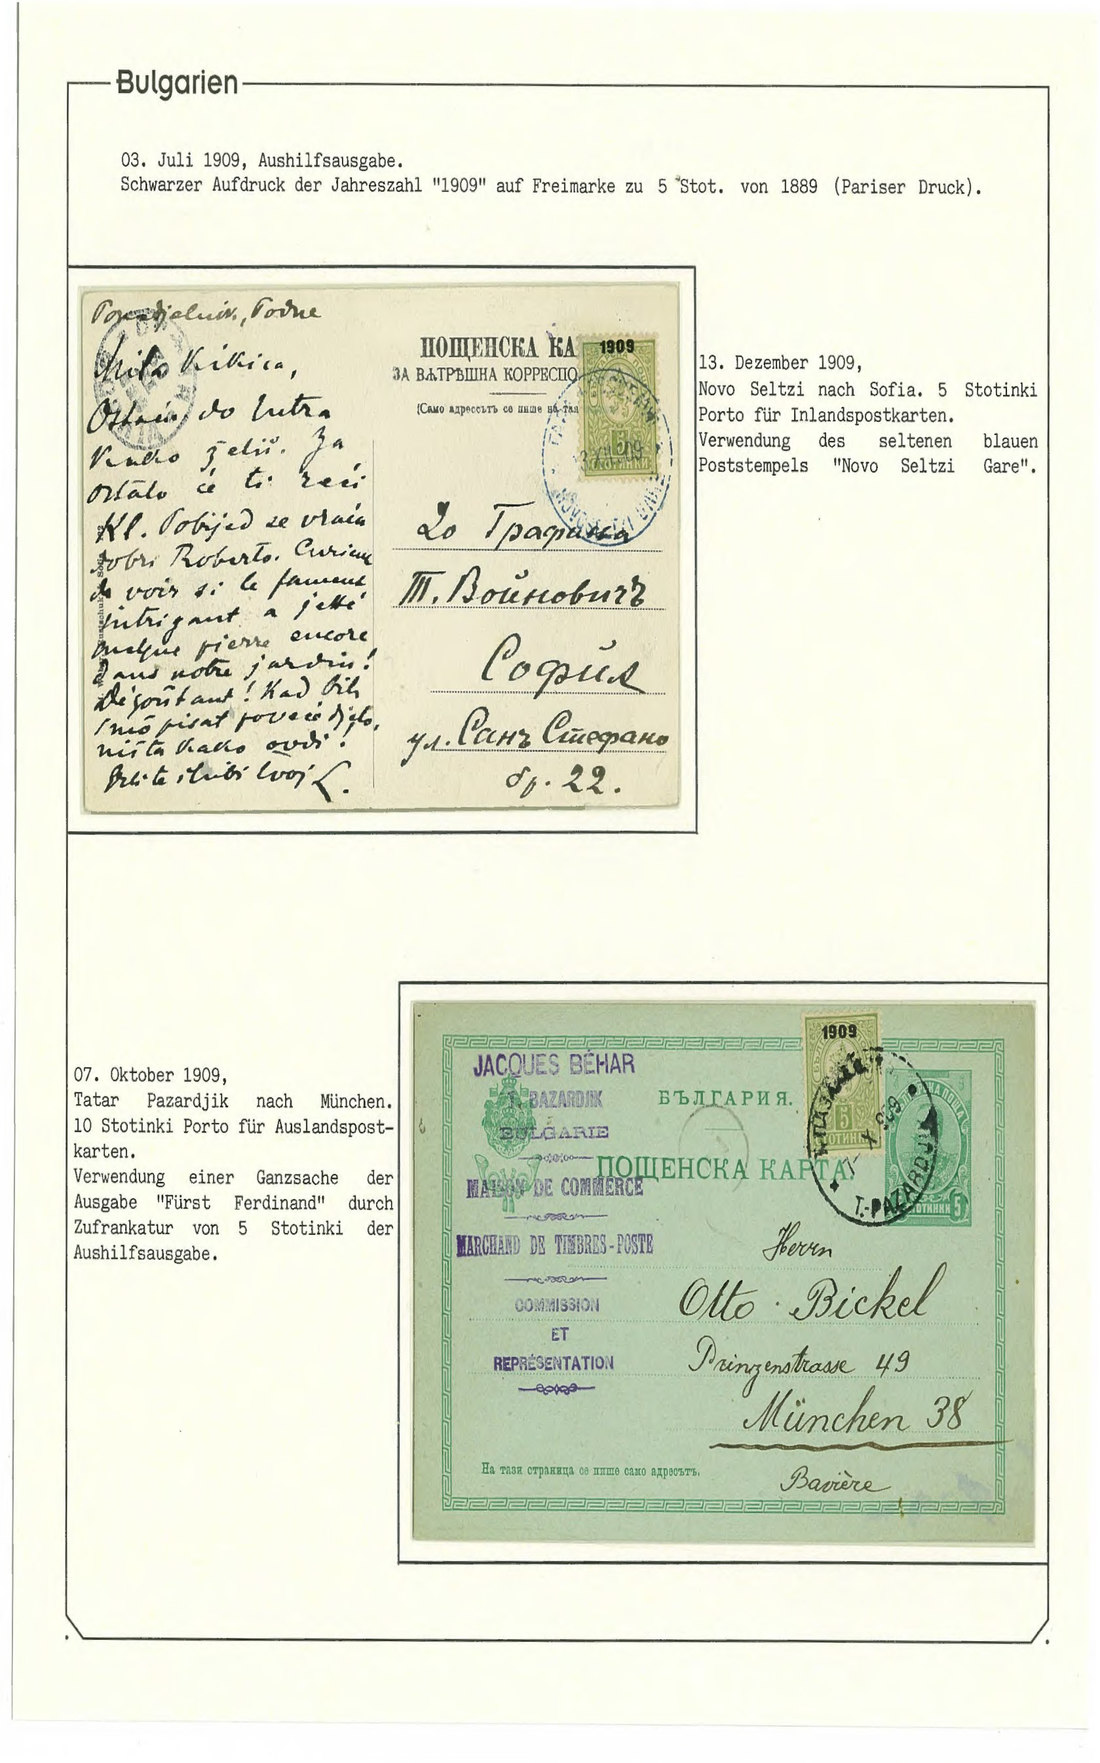 Bulgarien
03. Juli 1909, Aushilfsausgabe.
Schwarzer Aufdruck der Jahreszahl "1909" auf Freimarke zu 5 Stot. von 1889 (Pariser Druck).
ПОЩЕНСКА КА
ЗА ВѪТРѢШНА КОРРЕСПО
(Само адрессътъ се пише на тая
1909
До Графиня
Т. Войновичъ
София
ул. Санъ Стефано
бр. 22.
Ponedjelnik, Podne
Mila Kikica,
Ostain do Jutra
kako želiš. Za
ostalo će ti reći
Kl. Pobijed se vraća
dobri Roberto. Curieux
de voir si le fameux
intrigant a jetté
quelque pierre encore
dans notre jardin!
Dégoûtant! Kad bih
smo pisat povece djelo,
ništa kako ovdi!
tvoj L.
13. Dezember 1909,
Novo Seltzi nach Sofia. 5 Stotinki
Porto für Inlandspostkarten.
Verwendung des seltenen blauen
Poststempels "Novo Seltzi Gare".
07. Oktober 1909,
Tatar Pazardjik nach München.
10 Stotinki Porto für Auslandspost-
karten.
Verwendung einer Ganzsache der
Ausgabe "Fürst Ferdinand" durch
Zufrankatur von 5 Stotinki der
Aushilfsausgabe.
JACQUES BÉHAR
T. BAZARDJIK
BULGARIE
MAISON DE COMMERCE
MARCHAND DE TIMBRES-POSTE
COMMISSION
ET
REPRÉSENTATION
БЪЛГАРИЯ.
ПОЩЕНСКА КАРТА.
1909
T.-PAZARDJIK
Herrn
Otto Bickel
Prinzenstrasse 49
München 38
Bavière
На тази страница се пише само адресътъ.